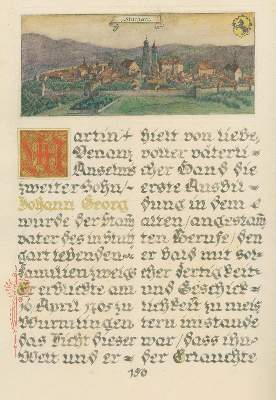 Stuttgart
Martin/
Venanz
Anselms
zweiter Sohn/
Johann Georg
wurde der Stam̄
vater des in Stutt
gart lebenden
Familienzweigs
Er erblickte am
April 1705 zu
Wurmlingen
das Licht dieser
Welt und er=
hielt von liebe,
voller väterli=
cher Hand die
erste Ausbil=
dung in dem
alten/angestam̄
ten Berufe/den
er bald mit sol=
cher Fertigkeit
und Geschick=
lichkeit zu meis
tern imstande
war/dass ihn
der Erlauchte
150